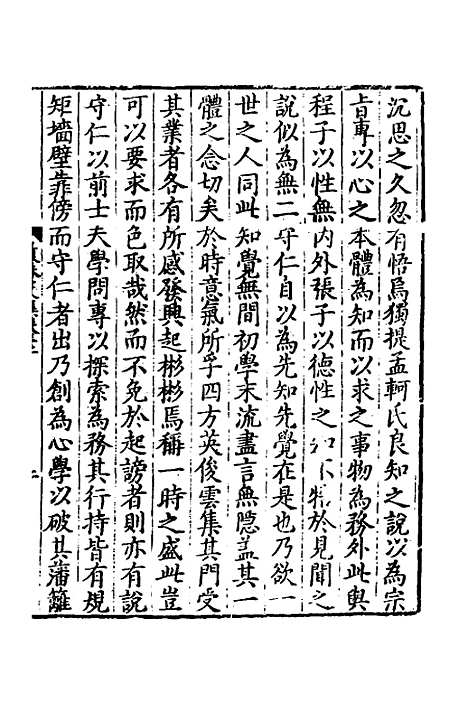 沉思之久忽有悟焉獨提孟軻氏良知之說以為宗
旨專以心之本體為知而以求之事物為務外此與
程子以性無內外張子以德性之知不牿於見聞之
說似為無二守仁自以為先知先覺在是也乃欲一
世之人同此知覺無間初學末流盡言無隱盖其一
體之念切矣於時意氣所孚四方英俊雲集其門受
其業者各有所感發興起彬彬焉稱一時之盛此豈
可以要求而色取哉然而不免於起謗者則亦有說
守仁以前士夫學問專以探索為務其行持皆有規
矩墻壁靠傍而守仁者出乃創為心學以破其藩籬